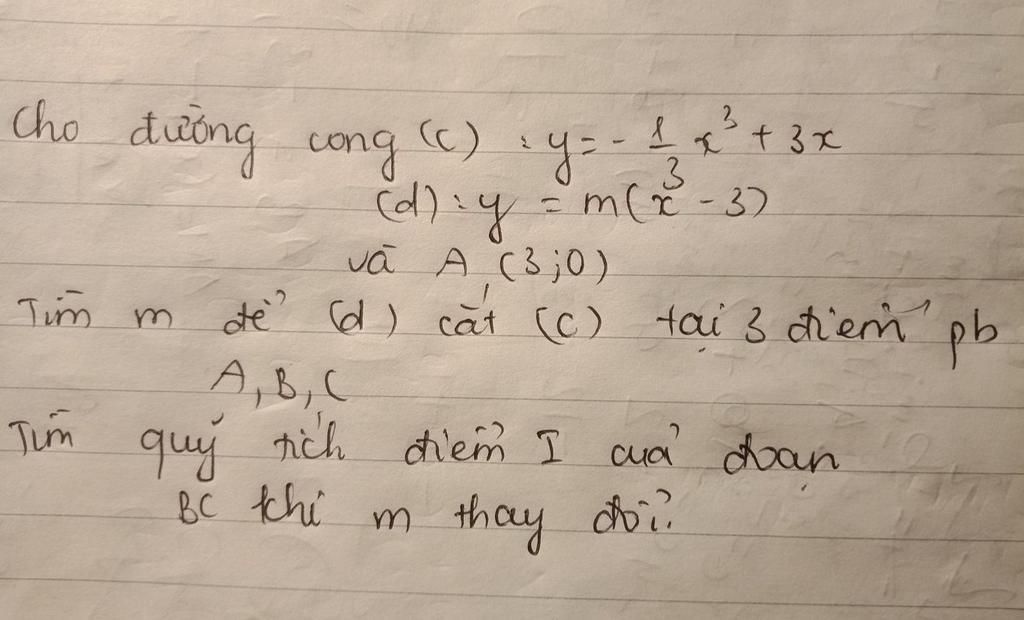 Cho đường cong (C) : y = - 1/3 x³ + 3x
(d) : y = m(x - 3)
và A (3;0)
Tìm m để (d) cắt (C) tại 3 điểm pb
A, B, C
Tìm quỹ tích điểm I của đoạn
BC khi m thay đổi?